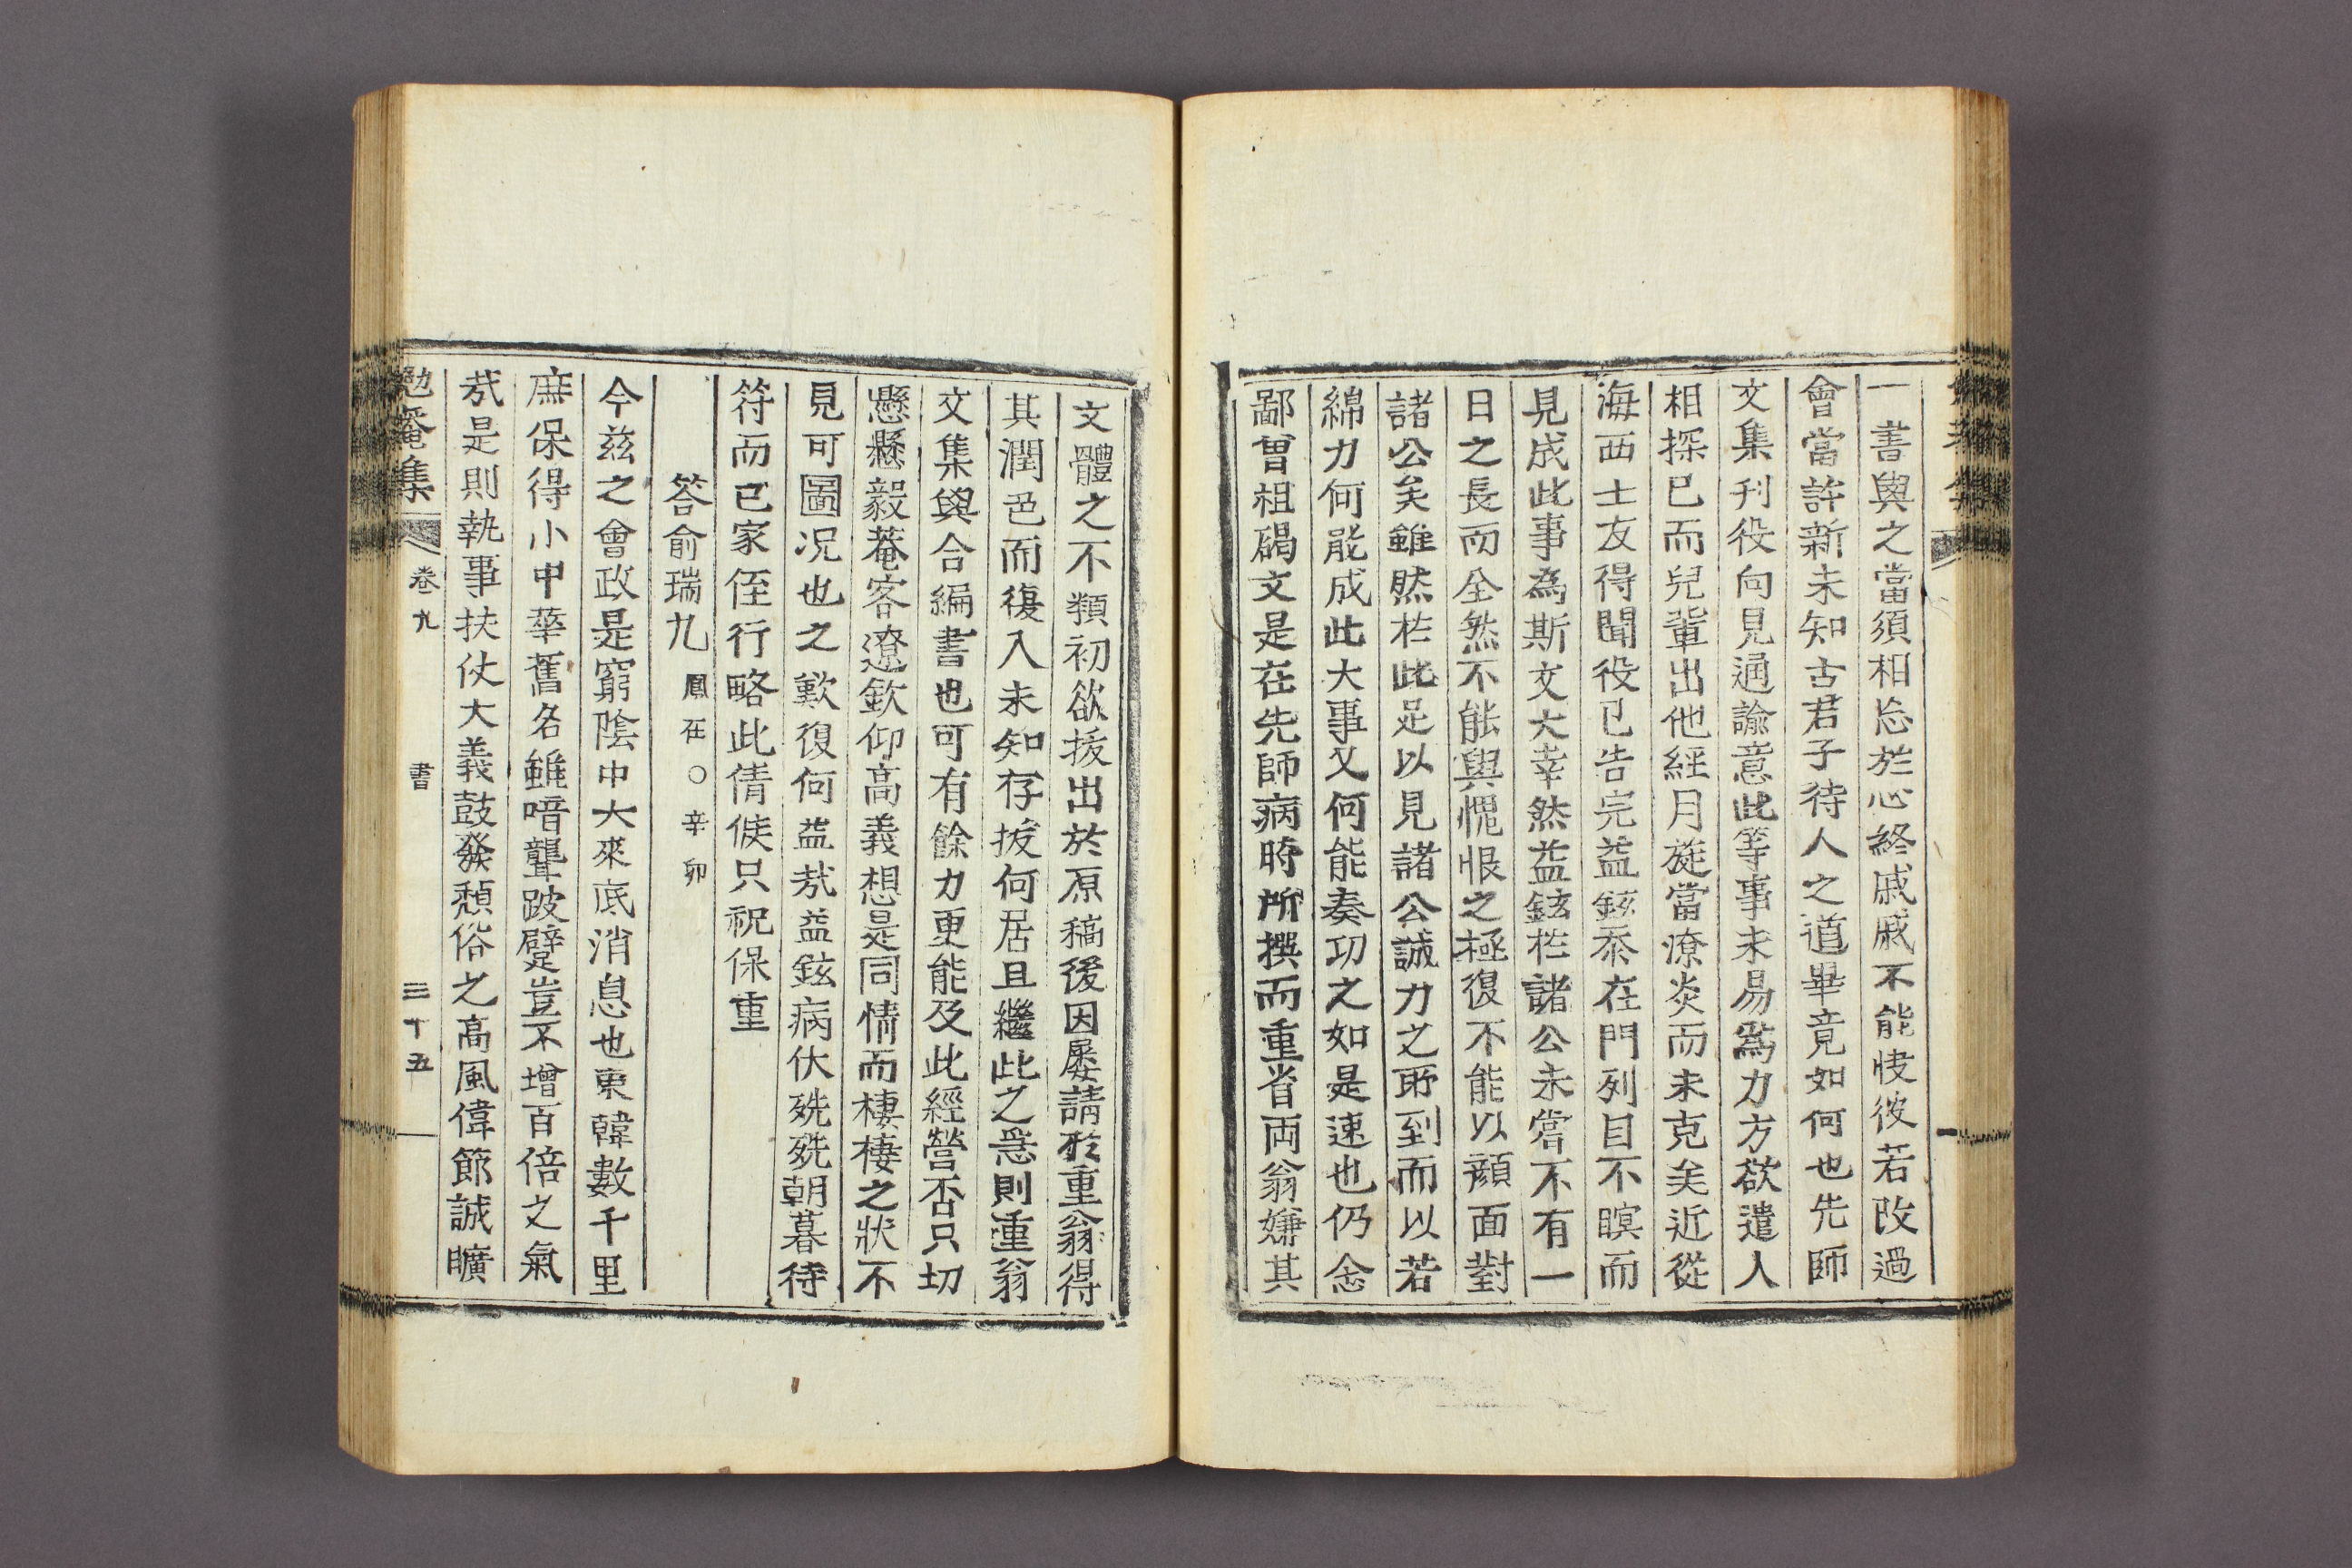 一書與之當須相忘於心終戚戚不能快彼若改過
會當許新未知古君子待人之道畢竟如何也先師
文集刋役向見通諭意此等事未易爲力方欲遣人
相探已而兒輩出他經月旋當潦炎而未克矣近從
海西士友得聞役已告完益鉉忝在門列目不瞑而
見成此事為斯文大幸然益鉉於諸公未嘗不有一
日之長而全然不能與愧恨之極復不能以顔面對
諸公矣雖然於此足以見諸公誠力之所到而以若
綿力何能成此大事又何能奏功之如是速也仍念
鄙曾祖碣文是在先師病時所撰而重省両翁嫌其
文體之不類初欲拔出於原稿後因屡請於重翁得
其潤色而復入未知存拔何居且繼此之爲則重翁
文集與合編書也可有餘力更能及此經營否只切
懸懸毅菴客遼欽仰高義想是同情而棲棲之狀不
見可圖况也之歎復何益㢤益鉉病伏兟兟朝暮待
符而已家侄行略此倩候只祝保重
答俞瑞九 鳳在○辛卯
今茲之會政是窮陰中大來底消息也東韓數千里
庶保得小中華舊名雖喑聾跛躄豈不增百倍之氣
㢤是則執事扶仗大義鼓發頽俗之高風偉節誠曠
勉菴集 卷九 書 三十五